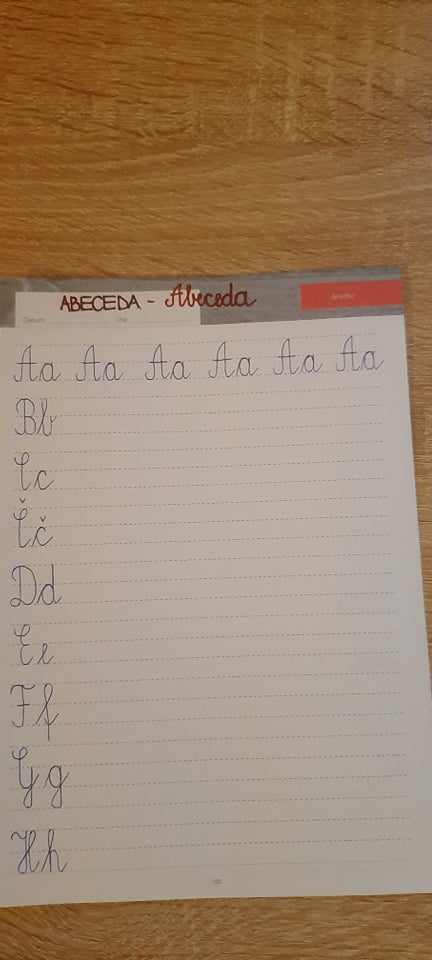 ABECEDA - Abeceda
Datum
Aa Aa Aa Aa Aa Aa
Bb
Cc
Čč
Dd
Ee
Ff
Gg
Hh